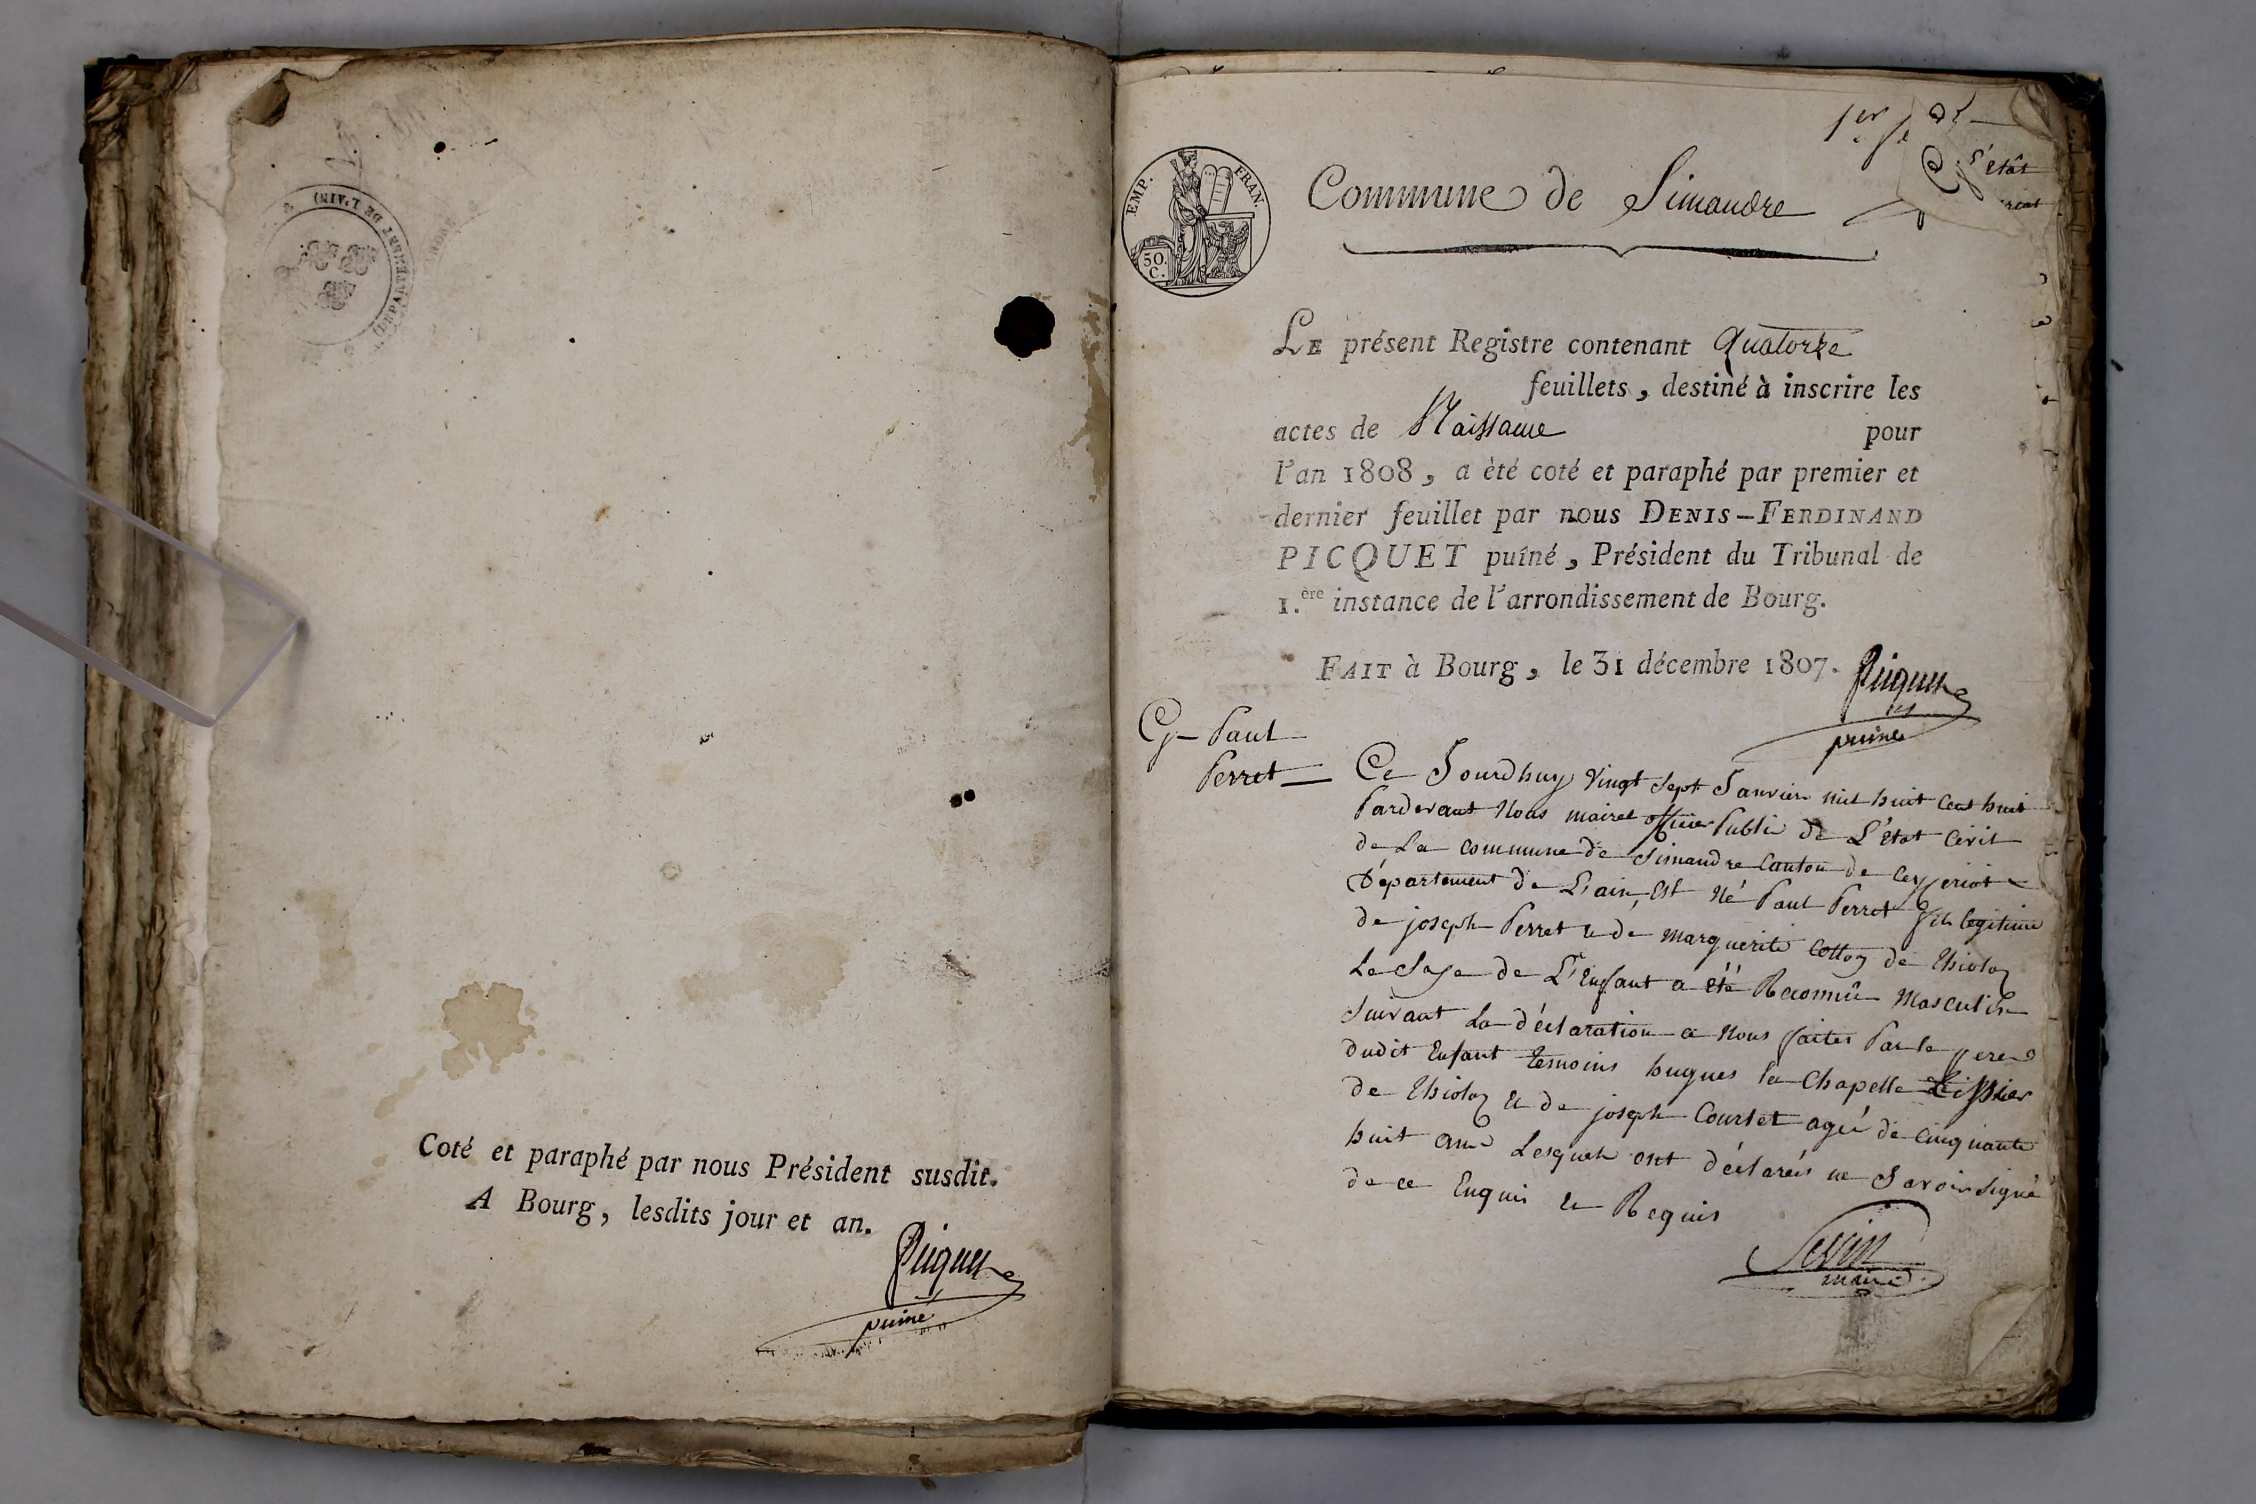 (DEPARTEMENT DE L'AIN)
Coté et paraphé par nous Président susdit.
A Bourg, lesdits jour et an.
Picquet
puiné
1er
l'Etât
EMP. FRAN.
50. C.
Commune de Simandre
LE présent Registre contenant Quatorze
feuillets, destiné à inscrire les
actes de Naissance pour
l'an 1808, a èté coté et paraphé par premier et
dernier feuillet par nous DENIS-FERDINAND
PICQUET puîné, Président du Tribunal de
1.ère instance de l'arrondissement de Bourg.
FAIT à Bourg, le 31 décembre 1807.
Picquet
puiné
Paul
Perret
Ce Jourdhuy vingt sept Janvier mil huit cent huit
Pardevant Nous maire officier Public de L'Etat Civil
de La commune de Simandre Canton de Ceyzeriat
Département de L'ain, Est Né Paul Perret fils legitime
de joseph Perret & de marguerite Cotton de Thioloz
Le Sexe de L'Enfant a été Reconnû Masculin
Suivant La déclaration a Nous faites Par le pere
dudit Enfant temoins hugues la Chapelle Tissier
de Thioloz & de joseph Courtet agé de Cinquante
huit ans Lesquels ont déclarés ne Savoir Signé
de ce Enquis & Requis
maire